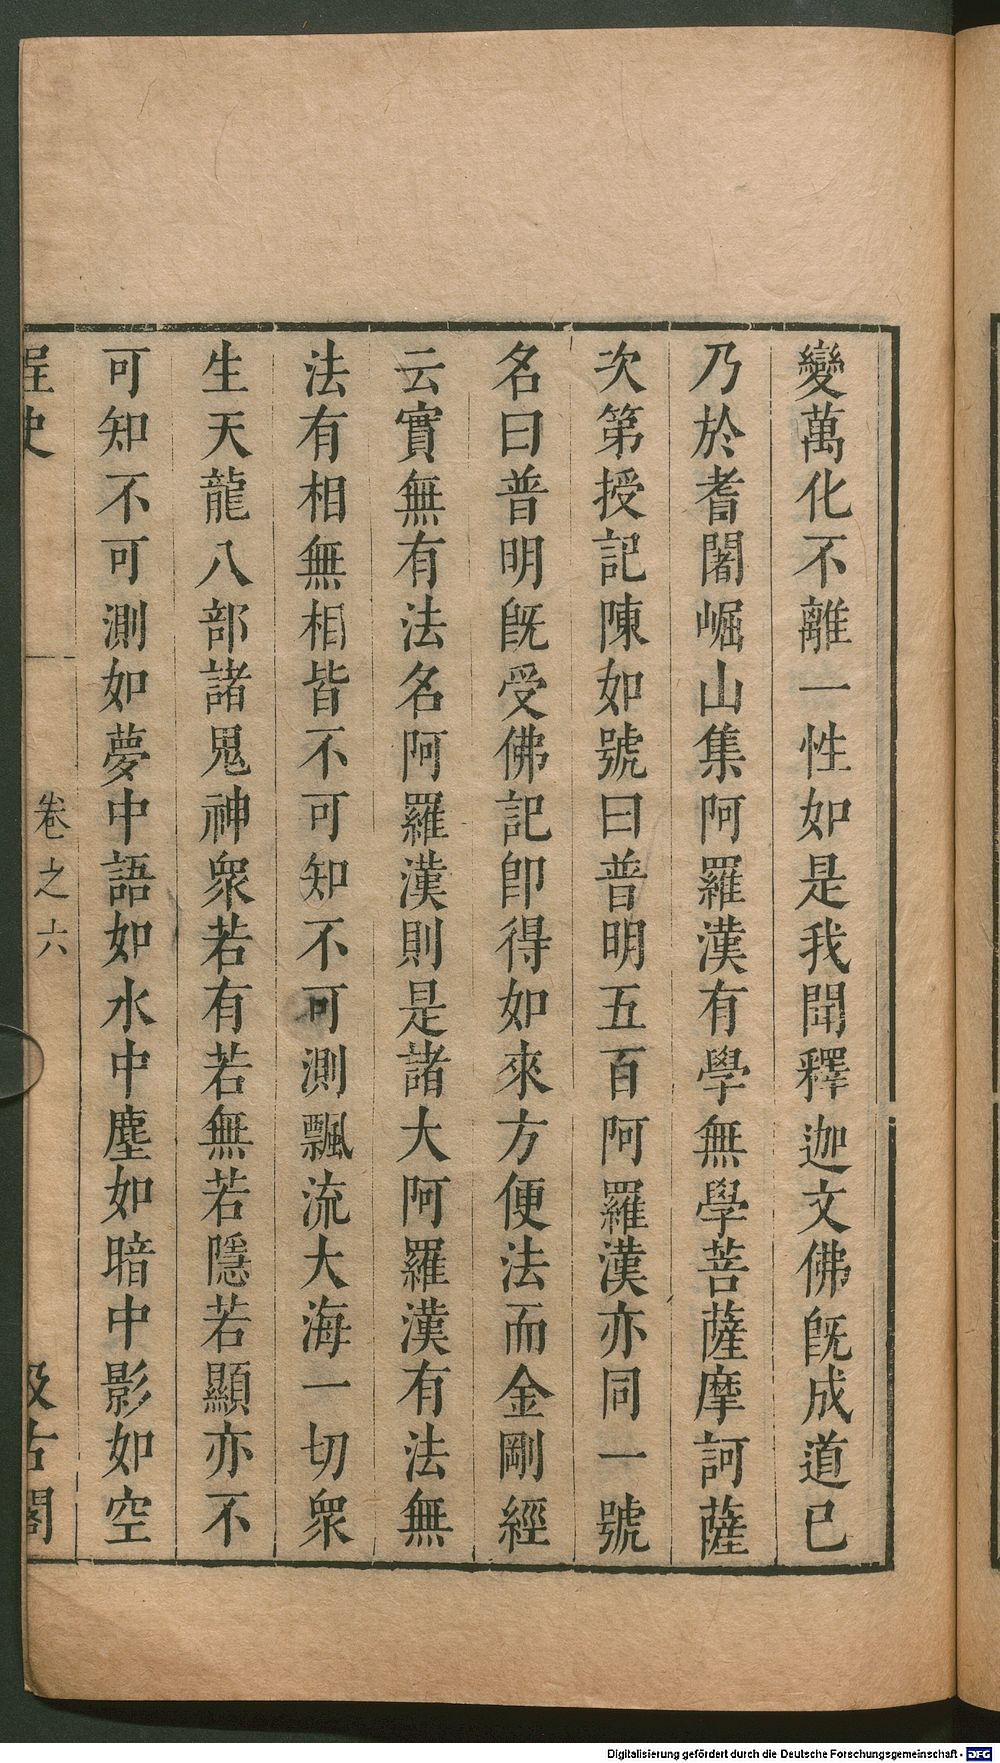 變萬化不離一性如是我聞釋迦文佛旣成道已
乃於耆闍崛山集阿羅漢有學無學菩薩摩訶薩
次第授記陳如號曰普明五百阿羅漢亦同一號
名曰普明旣受佛記卽得如來方便法而金剛經
云實無有法名阿羅漢則是諸大阿羅漢有法無
法有相無相皆不可知不可測飄流大海一切衆
生天龍八部諸鬼神衆若有若無若隱若顯亦不
可知不可測如夢中語如水中塵如暗中影如空
桯史
卷之六
汲古閣
Digitalisierung gefördert durch die Deutsche Forschungsgemeinschaft - DFG